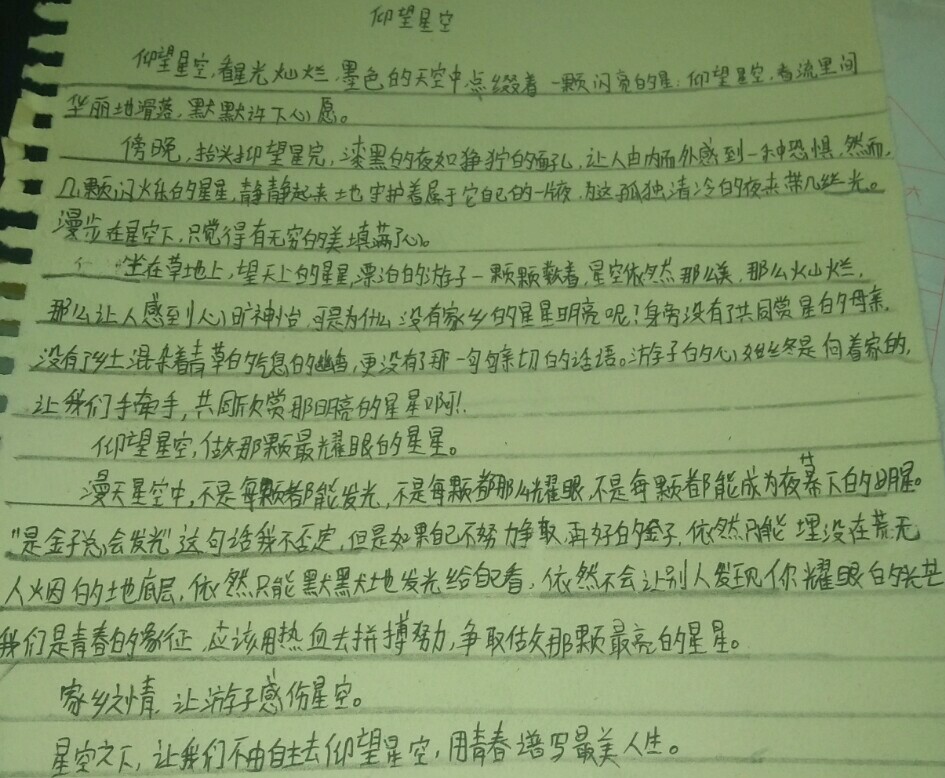 仰望星空
仰望星空,看星光灿烂,墨色的天空中点缀着一颗闪亮的星;仰望星空,看流星间
华丽地滑落,默默许下心愿。
傍晚,抬头仰望星空,漆黑的夜如狰狞的面孔,让人由内而外感到一种恐惧,然而,
几颗闪烁的星星,静静起来地守护着属于它自己的一片夜,为这孤独清冷的夜来带几丝光。
漫步在星空下,只觉得有无穷的美填满了心。
坐在草地上,望天上的星星,漂泊的游子一颗颗数着,星空依然那么美,那么灿烂,
那么让人感到心旷神怡,可是为什么没有家乡的星星明亮呢?身旁没有了共同赏星的母亲,
没有了乡土混杂着青草的气息的幽香,更没有了那一句句亲切的话语。游子的心始终是向着家的,
让我们手牵手,共同欣赏那明亮的星星啊!
仰望星空,做那颗最耀眼的星星。
漫天星空中,不是每颗都能发光,不是每颗都那么耀眼,不是每颗都能成为夜幕下的明星。
"是金子总会发光"这句话我不否定,但是如果自己不努力争取,再好的金子,依然只能埋没在荒无
人烟的土地底层,依然只能默默地发光给自己看,依然不会让别人发现你耀眼的光芒
我们是青春的象征,应该用热血去拼搏努力,争取做那颗最亮的星星。
家乡之情,让游子感伤星空。
星空之下,让我们不由自主去仰望星空,用青春谱写最美人生。